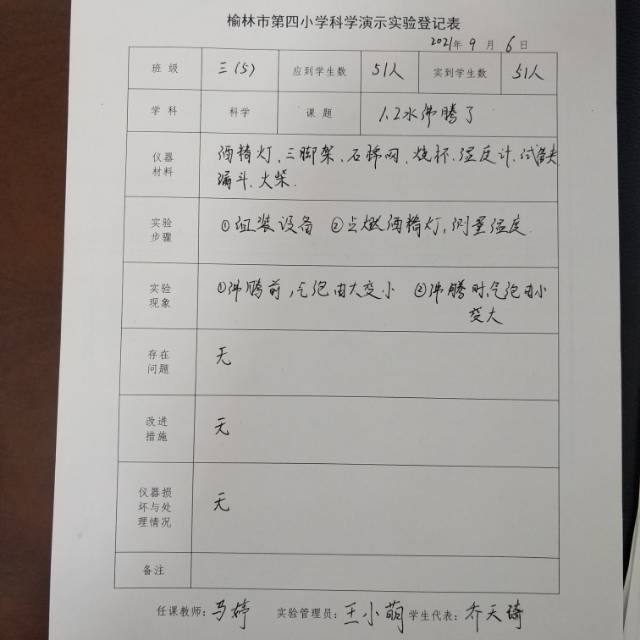 榆林市第四小学科学演示实验登记表
2021年 9 月 6 日
班 级 三(5) 应到学生数 51人 实到学生数 51人
学 科 科学 课 题 1.2水沸腾了
仪器 酒精灯.三脚架.石棉网.烧杯.温度计.试管夹
材料 漏斗.火柴.
实验
步骤 ①组装设备 ②点燃酒精灯,测量温度.
实验 ①沸腾前,气泡由大变小 ②沸腾时,气泡由小
现象 变大
存在
问题 无
改进
措施 无
仪器损
坏与处 无
理情况
备注
任课教师:马婷 实验管理员:王小萌 学生代表:乔天琦